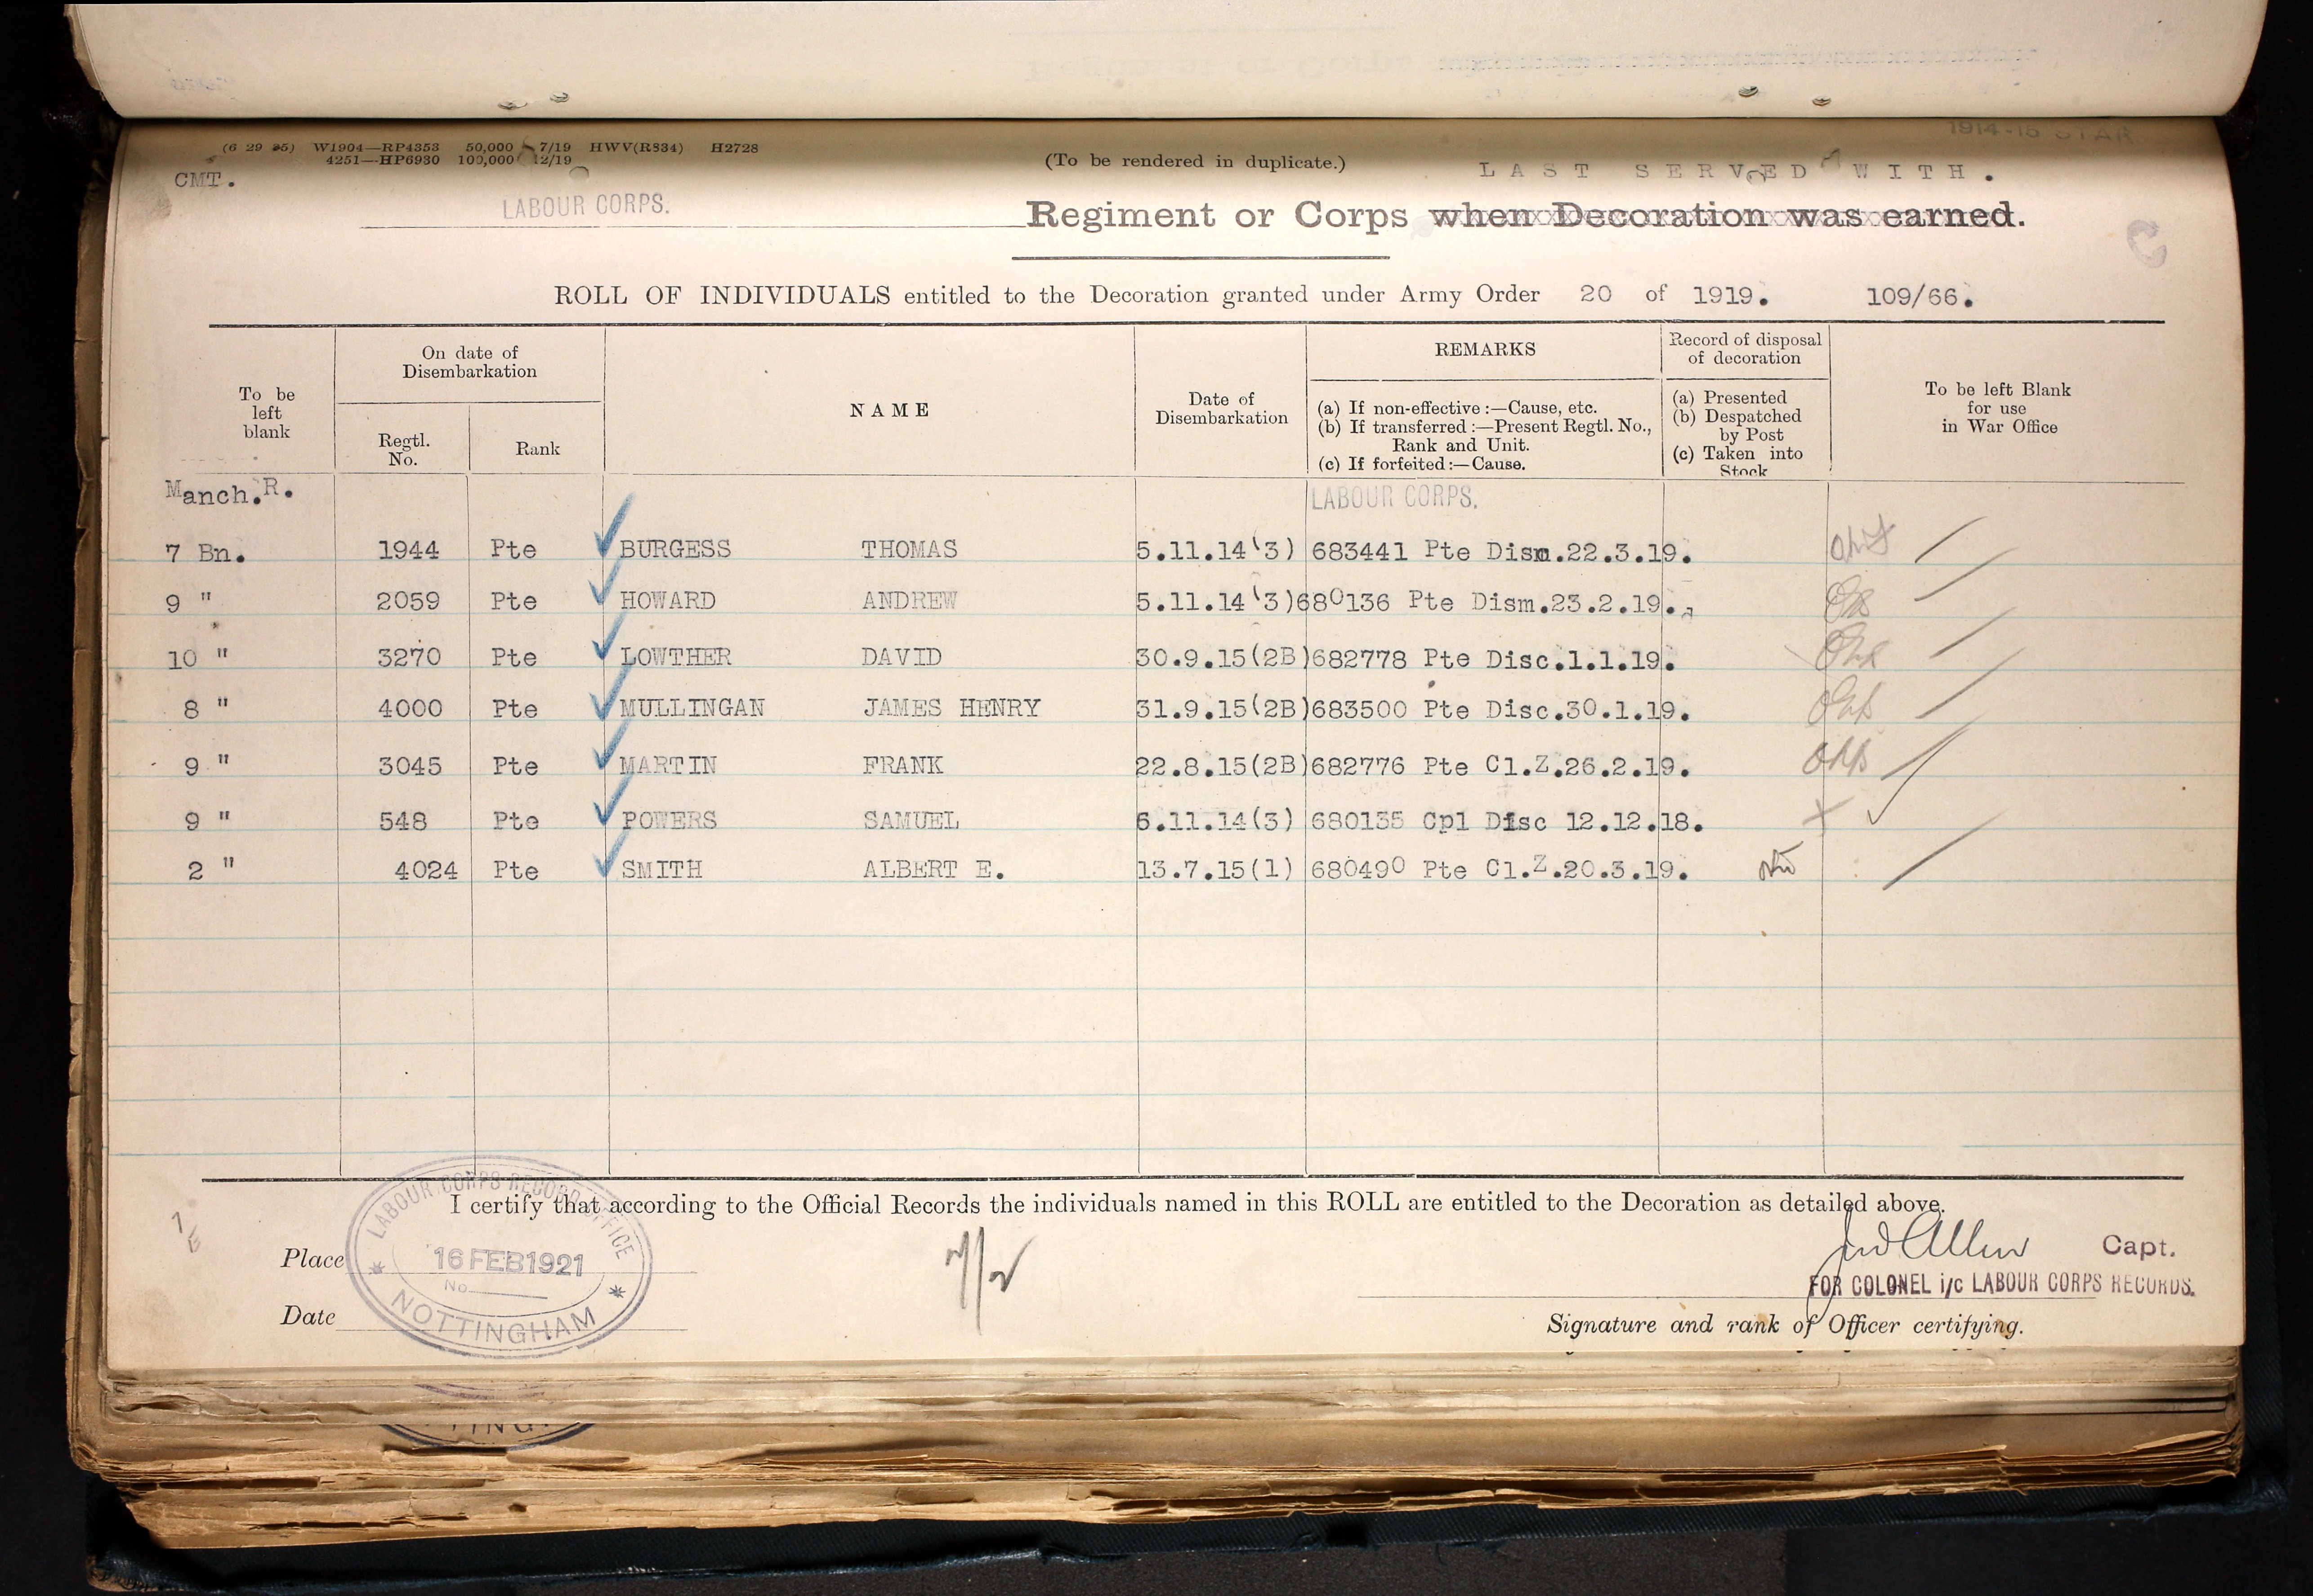 1914-15 STAR
(6 29 25) W1904—RP4353 50,000 7/19 HWV(R834) H2728
4251—HP6930 100,000 12/19
(To be rendered in duplicate.)
LAST SERVED WITH.
CMT.
LABOUR CORPS.
Regiment or Corps when Decoration was earned.
C
ROLL OF INDIVIDUALS entitled to the Decoration granted under Army Order 20 of 1919. 109/66.
To be left blank
On date of Disembarkation
Regtl. No.
Rank
NAME
Date of Disembarkation
REMARKS
(a) If non-effective :—Cause, etc.
(b) If transferred :—Present Regtl. No., Rank and Unit.
(c) If forfeited :—Cause.
Record of disposal of decoration
(a) Presented
(b) Despatched by Post
(c) Taken into Stock
To be left Blank for use in War Office
Manch.R. LABOUR CORPS.
7 Bn. 1944 Pte BURGESS THOMAS 5.11.14(3) 683441 Pte Dism.22.3.19.
9 " 2059 Pte HOWARD ANDREW 5.11.14(3)680136 Pte Dism.23.2.19.
10 " 3270 Pte LOWTHER DAVID 30.9.15(2B)682778 Pte Disc.1.1.19.
8 " 4000 Pte MULLINGAN JAMES HENRY 31.9.15(2B)683500 Pte Disc.30.1.19.
9 " 3045 Pte MARTIN FRANK 22.8.15(2B)682776 Pte Cl.Z.26.2.19.
9 " 548 Pte POWERS SAMUEL 6.11.14(3) 680135 Cpl Disc 12.12.18. X
2 " 4024 Pte SMITH ALBERT E. 13.7.15(1) 680490 Pte Cl.Z.20.3.19.
I certify that according to the Official Records the individuals named in this ROLL are entitled to the Decoration as detailed above.
LABOUR CORPS RECORD OFFICE
16 FEB 1921
No.
NOTTINGHAM
Place
Date
Allen Capt.
FOR COLONEL i/c LABOUR CORPS RECORDS.
Signature and rank of Officer certifying.